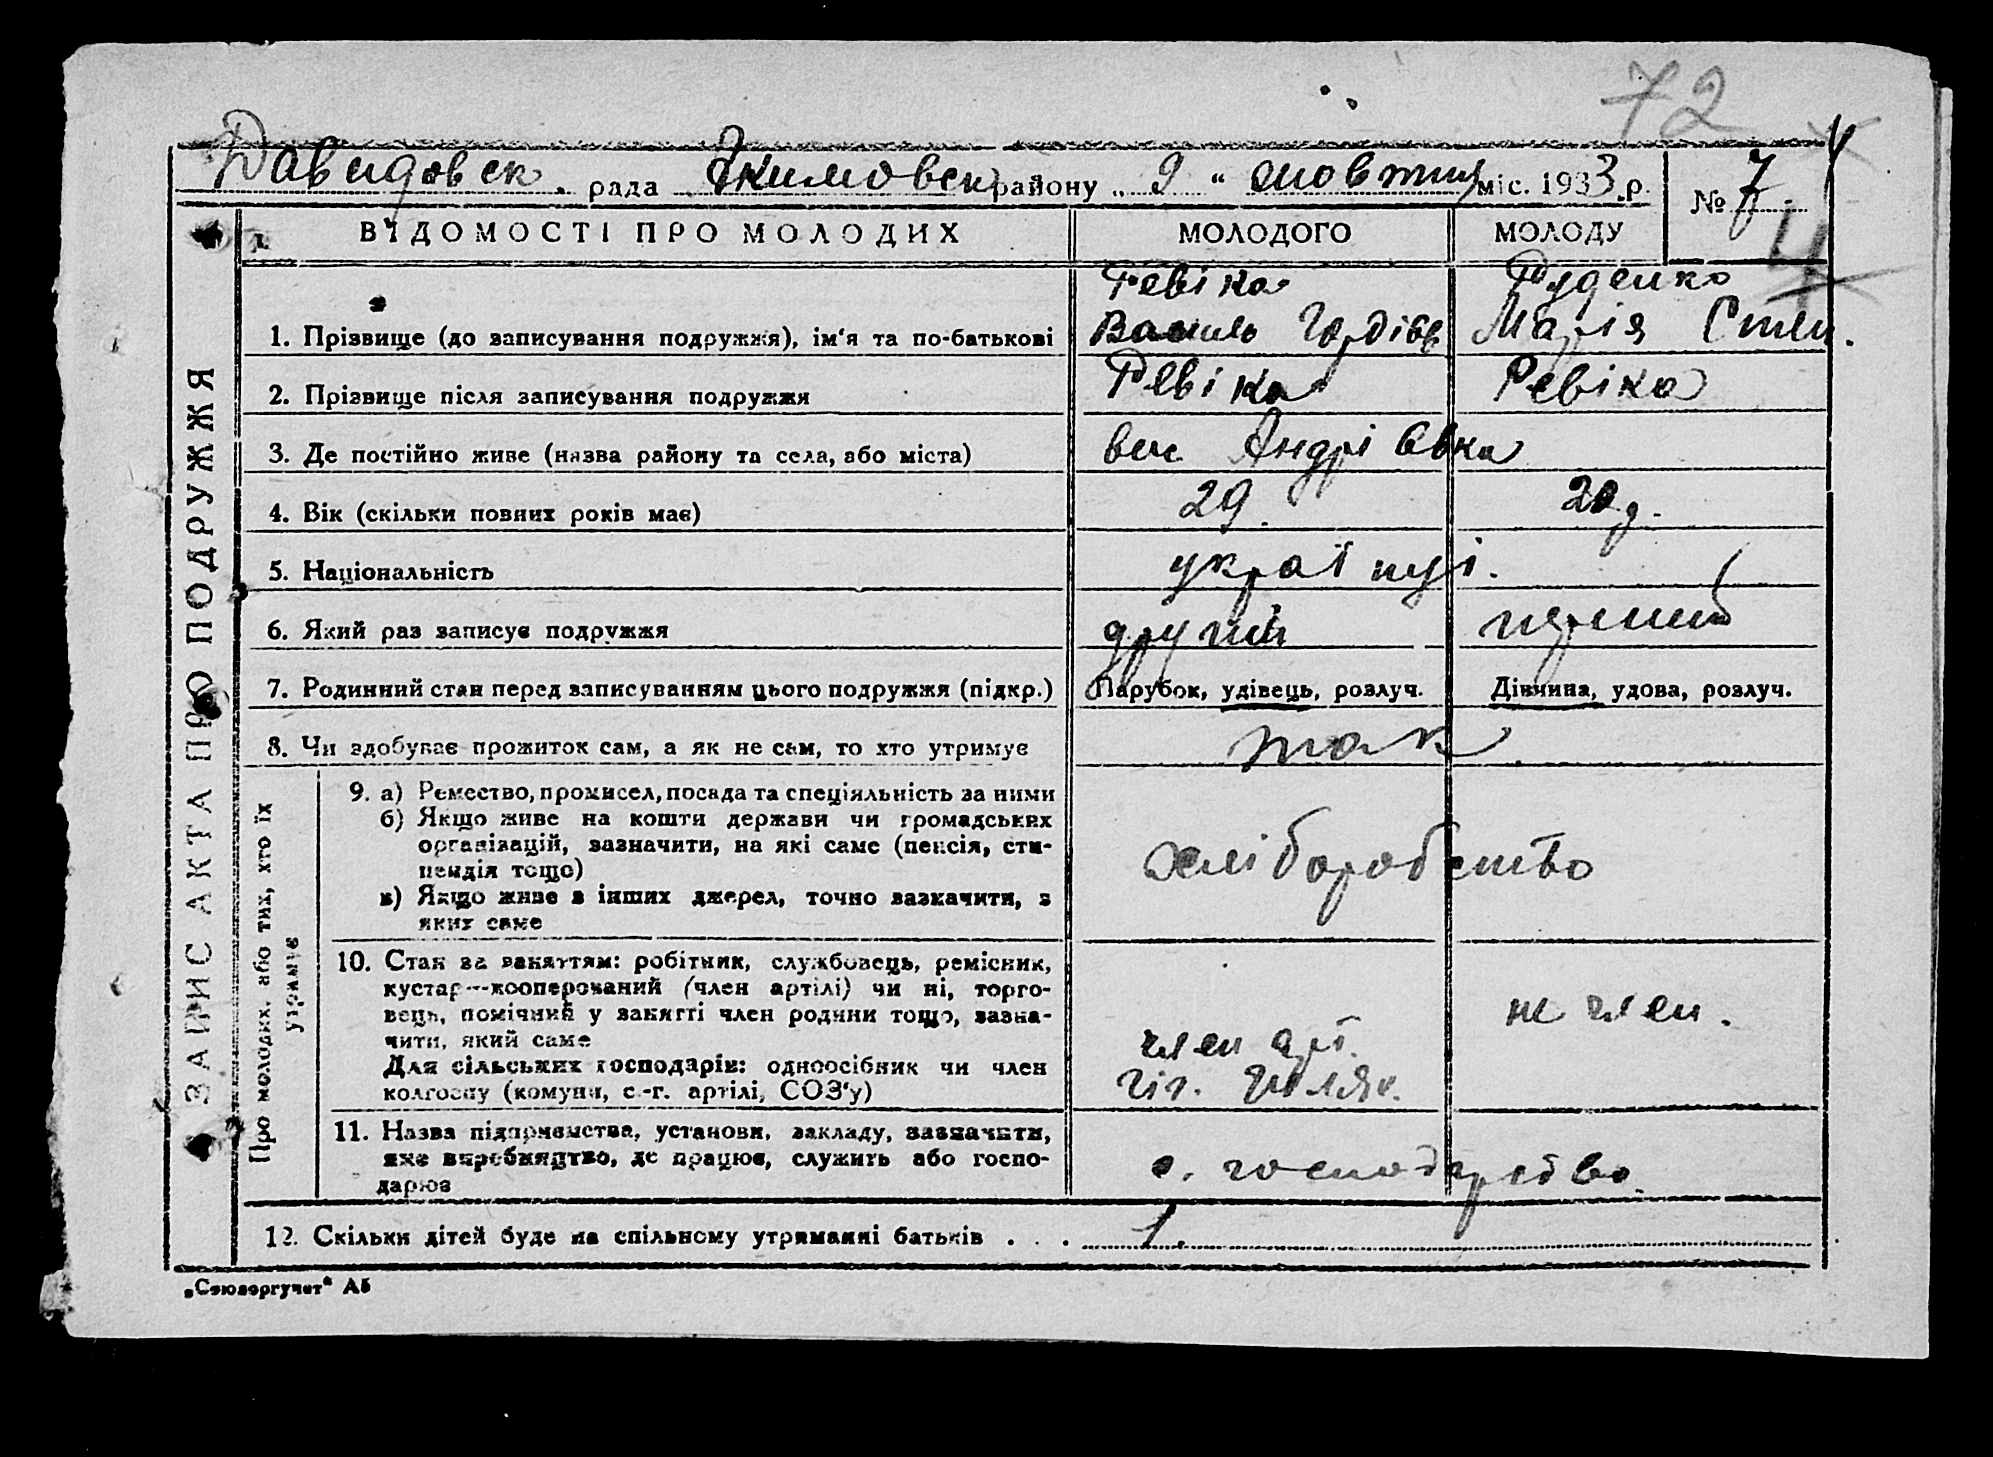 72
Давидовск. рада Якимовск району „ 9 “ жовтня міс. 1933 р. № 7
ВІДОМОСТІ ПРО МОЛОДИХ МОЛОДОГО МОЛОДУ
4
ЗАПИС АКТА ПРО ПОДРУЖЖЯ
Ревіка Руденко
1. Прізвище (до записування подружжя), ім'я та по-батькові Василь Гордієв Марія Степ.
2. Прізвище після записування подружжя Ревіка Ревіка
3. Де постійно живе (назва району та села, або міста) вис. Андріївка
4. Вік (скільки повних років має) 29. 20 р.
5. Національність українці.
6. Який раз записує подружжя другий перший
7. Родинний стан перед записуванням цього подружжя (підкр.) Парубок, удівець, розлуч. Дівчина, удова, розлуч.
8. Чи здобуває прожиток сам, а як не сам, то хто утримує так
Про молодих, або тих, хто їх
утримує
9. а) Ремество, промисел, посада та спеціяльність за ними
б) Якщо живе на кошти держави чи громадських
організацій, зазначити, на які саме (пенсія, сти-
пендія тощо) хліборобство
в) Якщо живе з інших джерел, точно зазначити, з
яких саме
10. Стан за заняттям: робітник, службовець, ремісник,
кустар—кооперований (член артілі) чи ні, торго-
вець, помічний у занятті член родини тощо, зазна- не член.
чити, який саме член арт.
Для сільських господарів: одноосібник чи член
колгоспу (комуни, с.-г. артілі, СОЗ'у)
11. Назва підприємства, установи, закладу, зазначити,
яке виробництво, де працює, служить або госпо- с. господарство
дарює
12. Скільки дітей буде на спільному утриманні батьків . . . 1.
„Союзоргучет“ А5